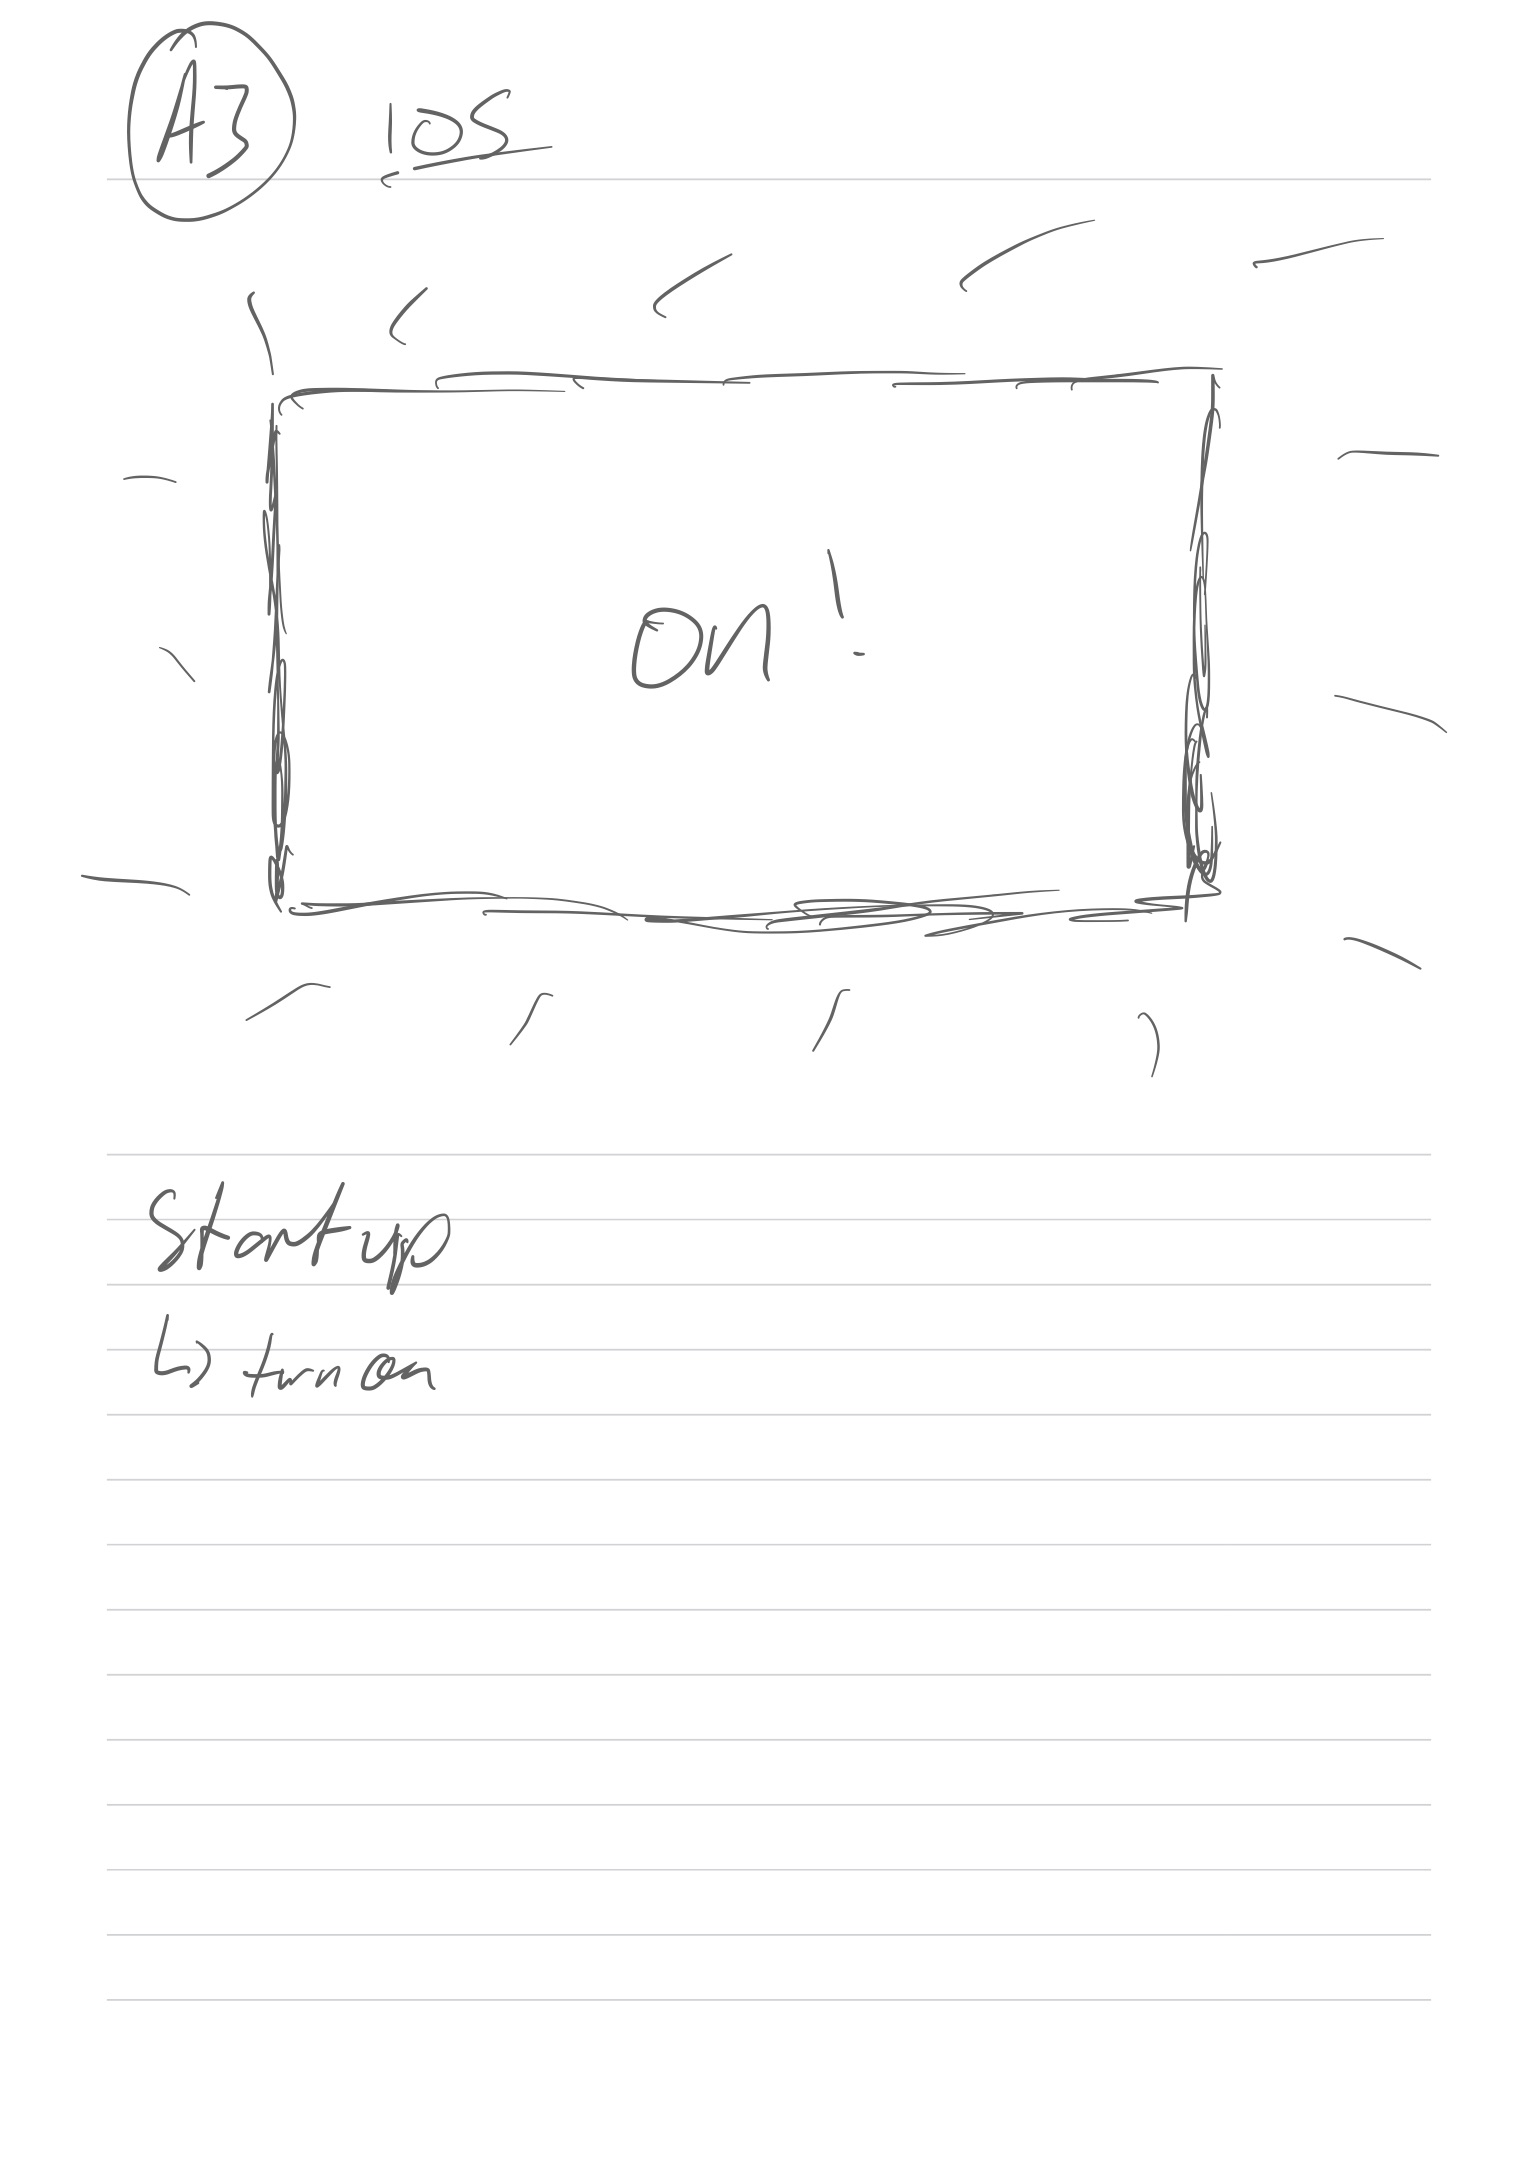 A3 10S
on!
Startup
↳ turn on